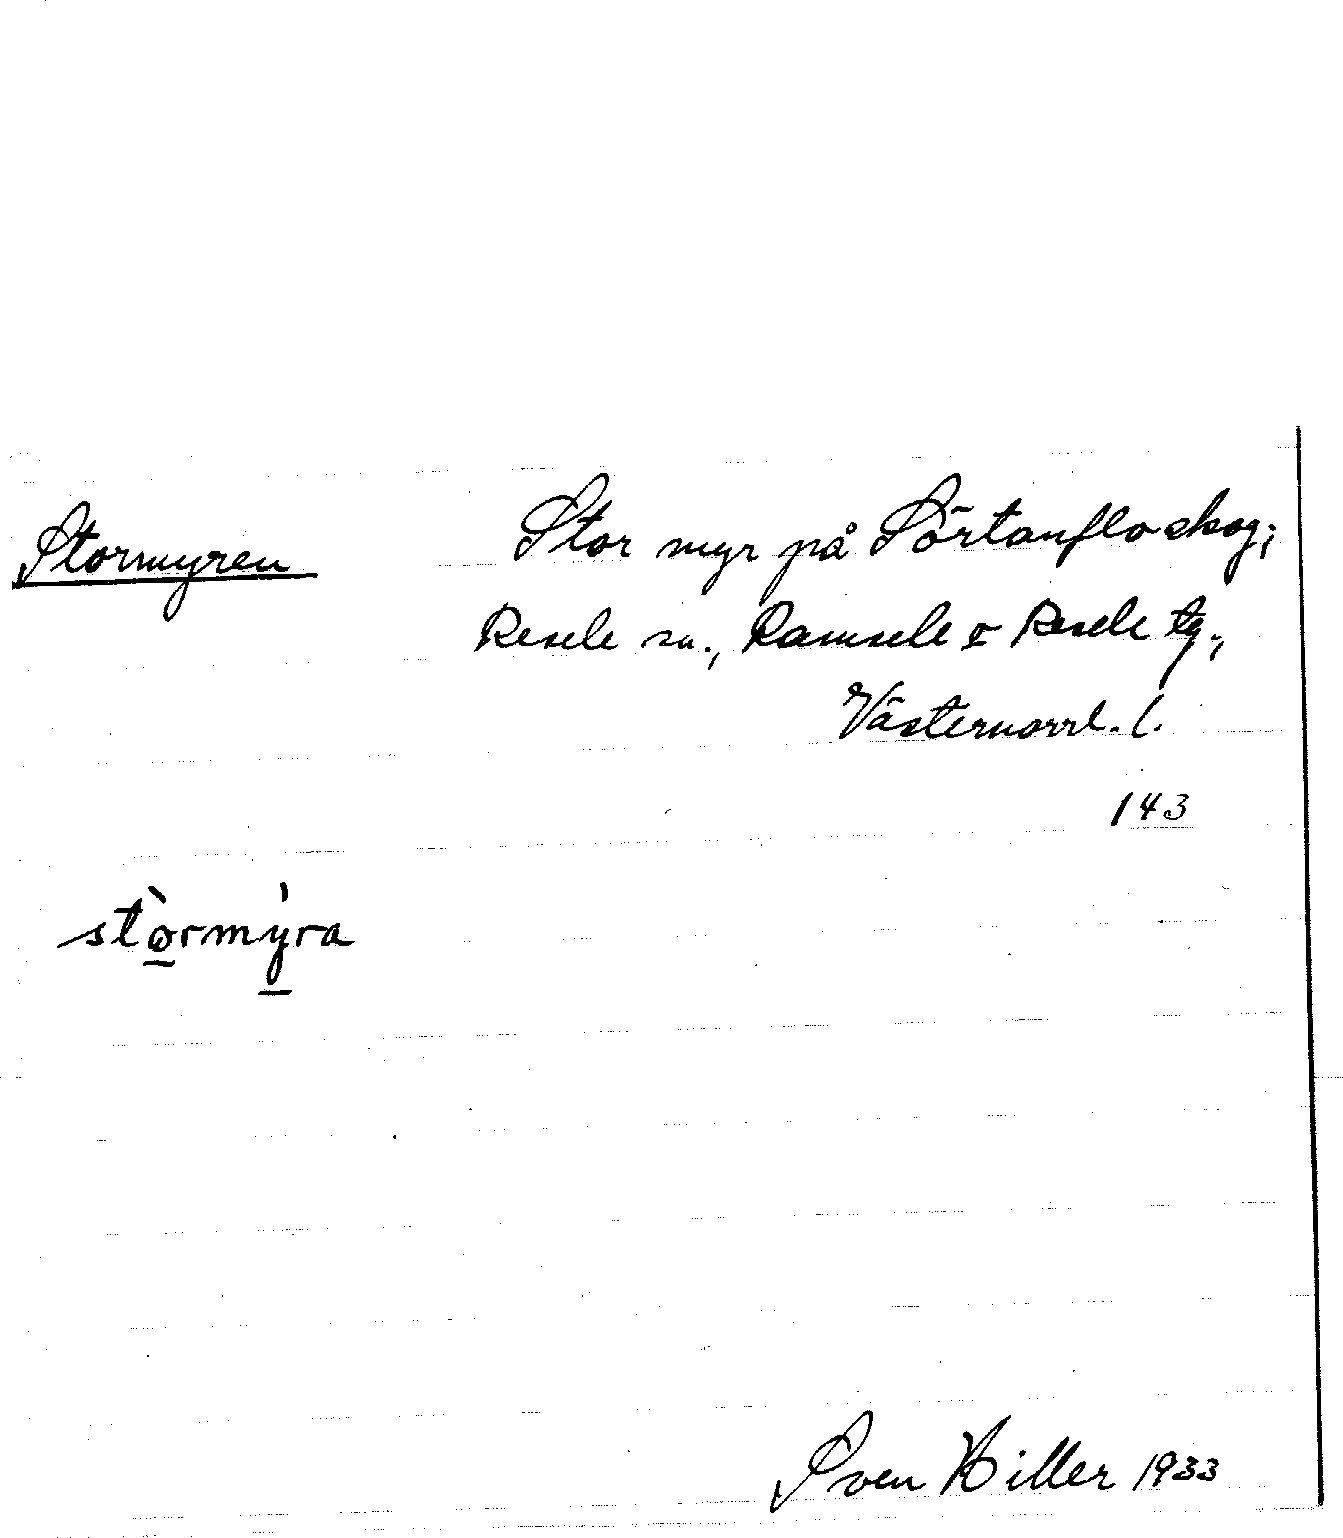 Stormyren
Stor myr på Sörtanfloskog;
Resele sn., Ramsele o Resele tg.,
Västernorrl. l.
143
stòrmýra
Sven Hiller 1933